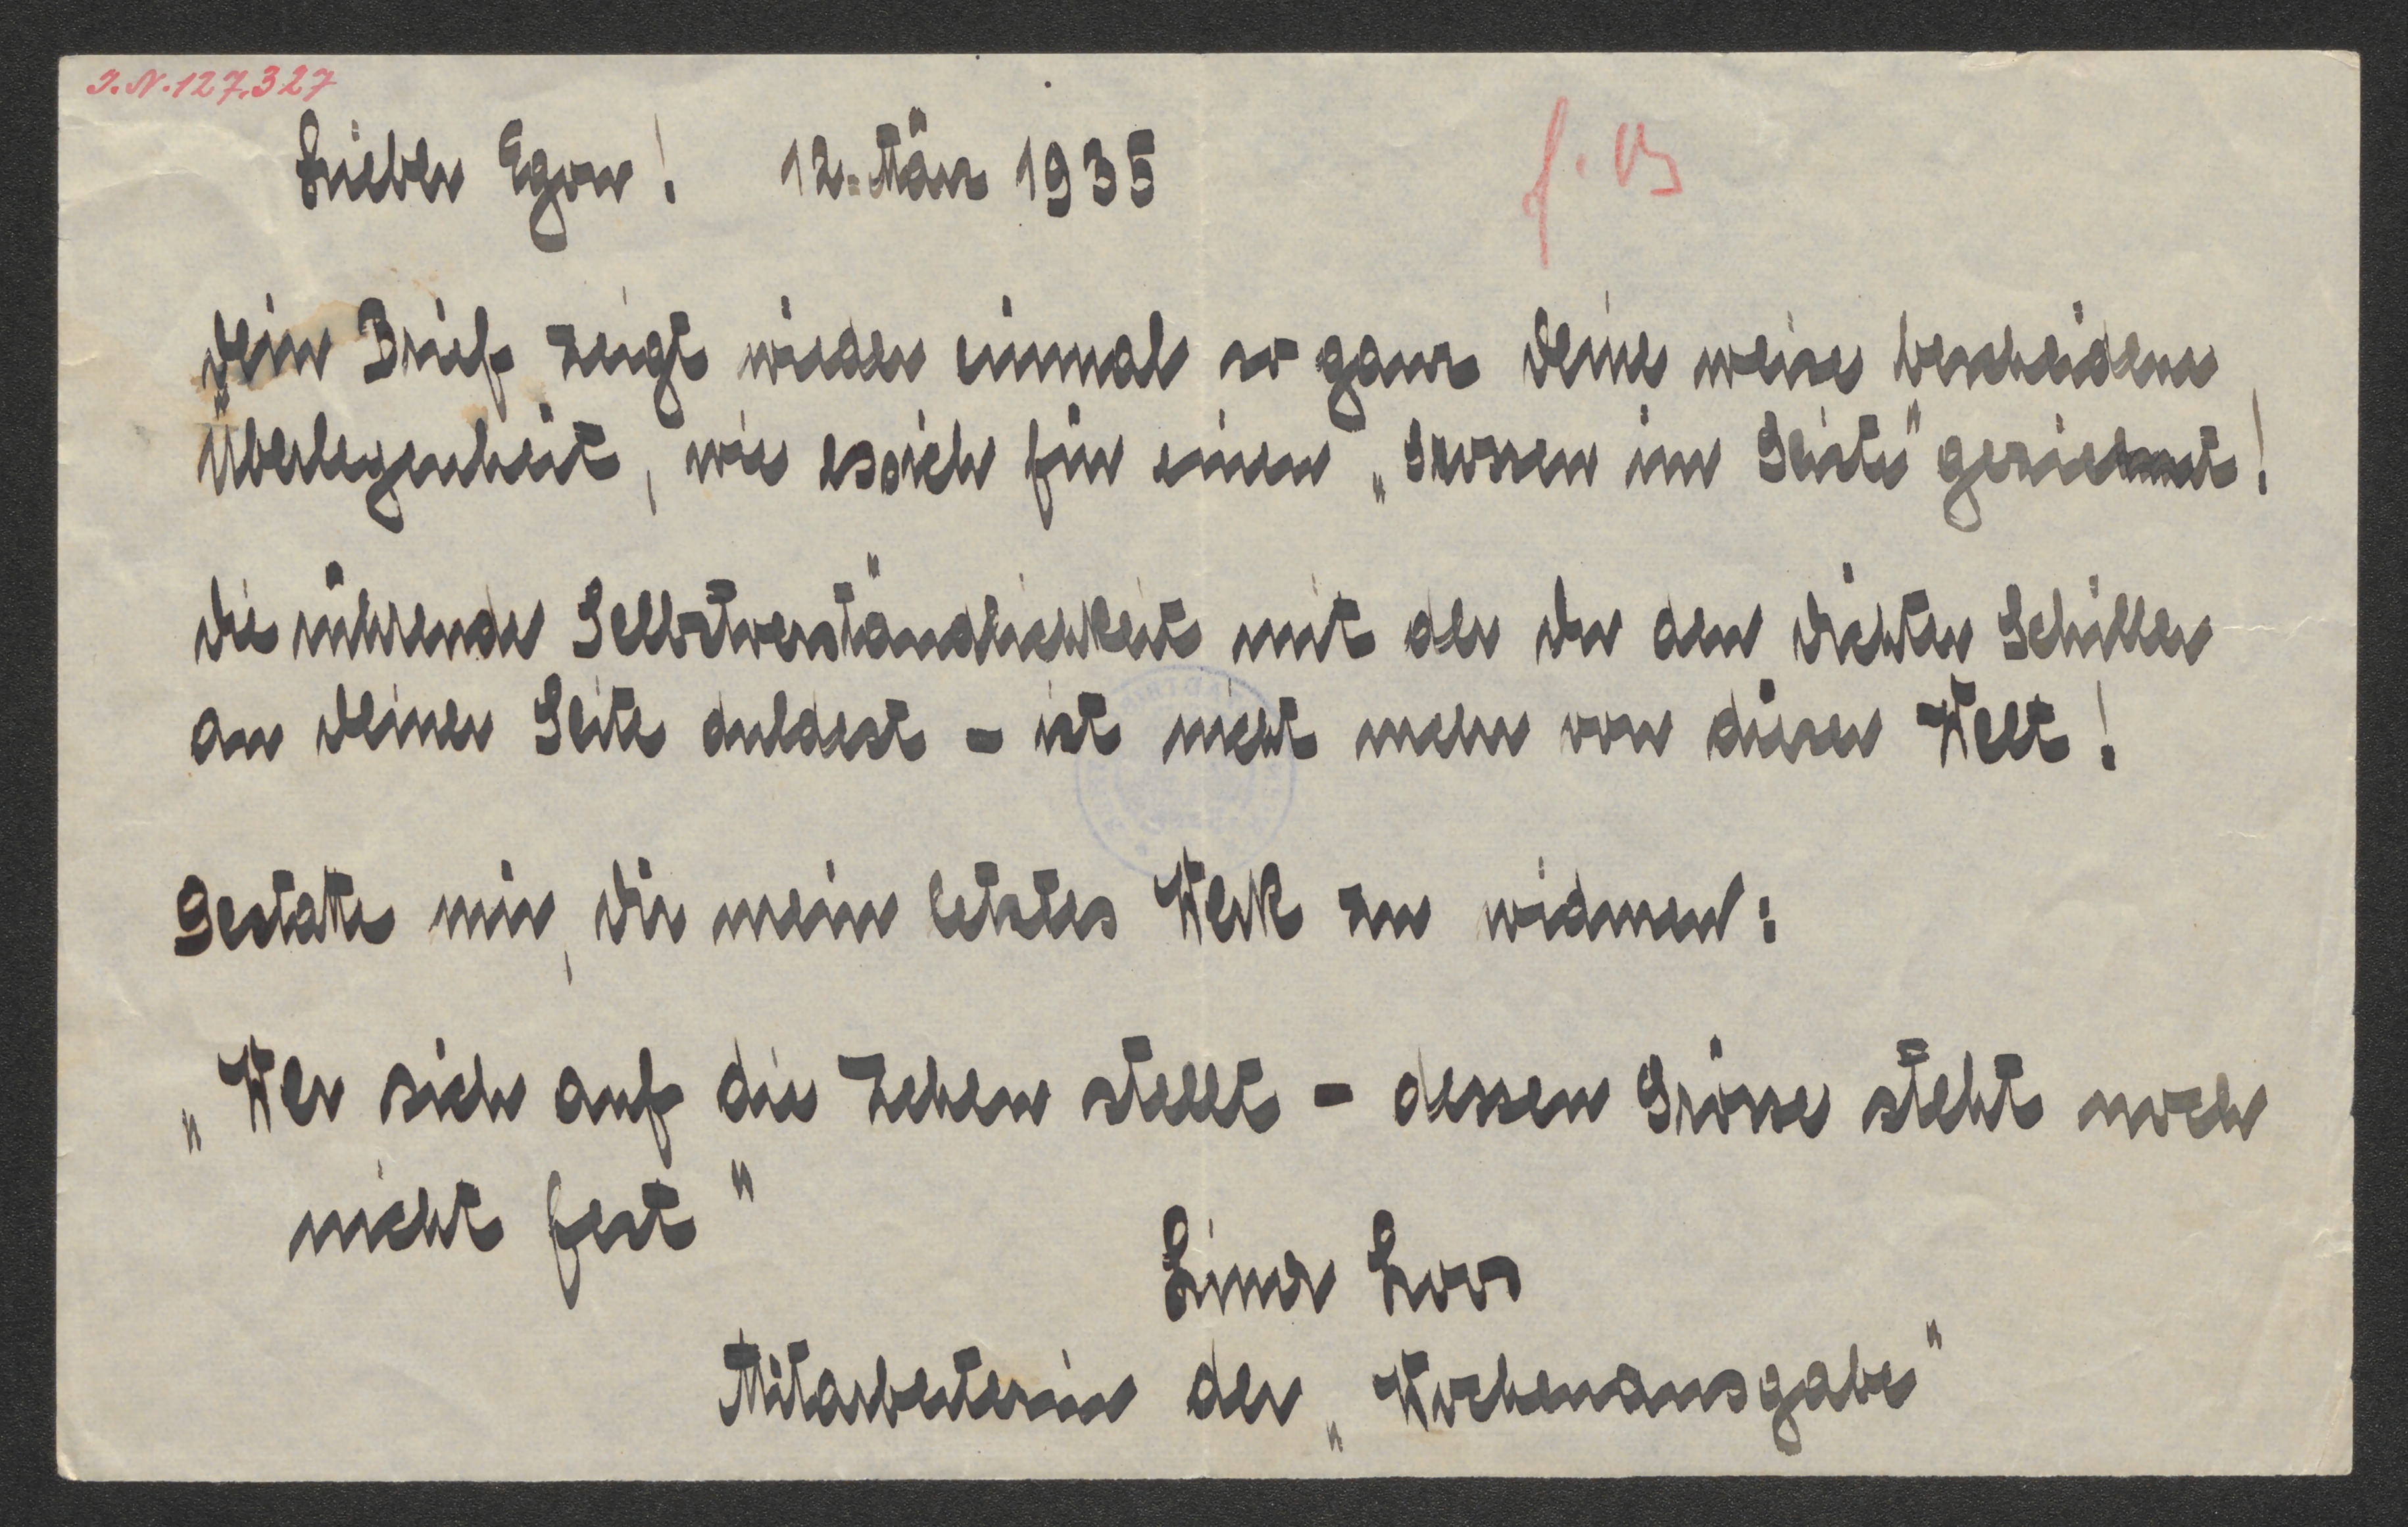 I.N.127.327
Lieber Egon! 12. März 1935
Dein Brief zeigt wieder einmal so ganz Deine weise bescheidene
Überlegenheit, wie es sich für einen „Grossen im Geiste" geziemt!
Die rührende Selbstverständlichkeit mit der Du den Dichter Schiller
an Deiner Seite duldest - ist nicht mehr von dieser Welt!
Gestatte mir, Dir mein letztes Werk zu widmen:
„Wer sich auf die Zehen stellt - dessen Grösse steht noch
nicht fest"
Lina Loos
Mitarbeiterin der „Wochenausgabe"